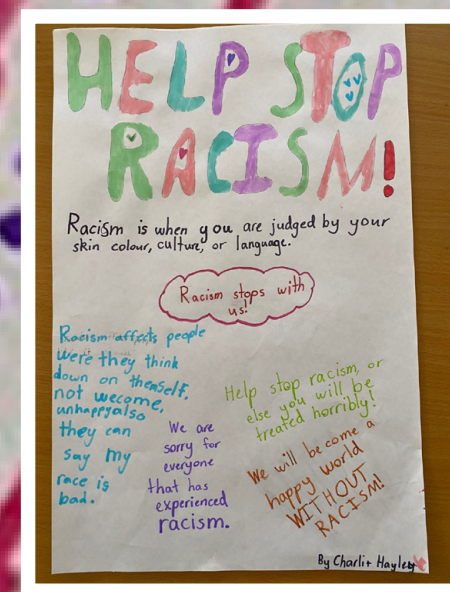 HELP STOP
RACISM!
Racism is when you are judged by your
skin colour, culture, or language.
Racism stops with
us!
Racism affects people
were they think
down on themself,
not wecome,
unhappy also
they can
say my
race is
bad.
We are
sorry for
everyone
that has
experienced
racism.
Help stop racism, or
else you will be
treated horribly!
We will become a
happy world
WITHOUT
RACISM!
By Charli + Hayley